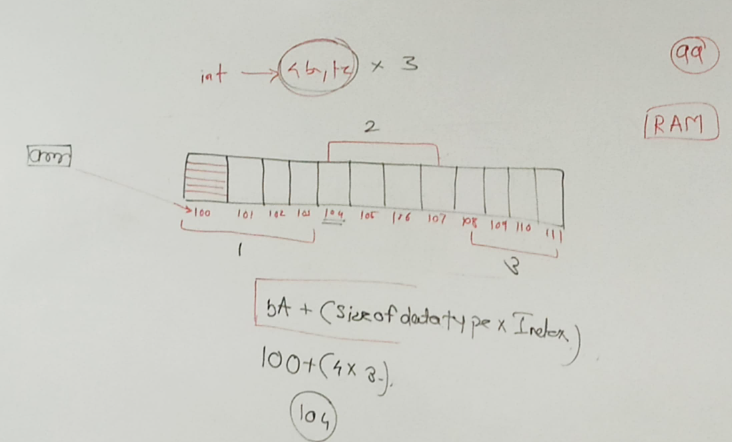 int → 4 byte × 3
99
RAM
arr
2
100 101 102 103 104 105 106 107 108 109 110 111
1
3
bA + (Size of datatype × Index)
100+(4×3).
104